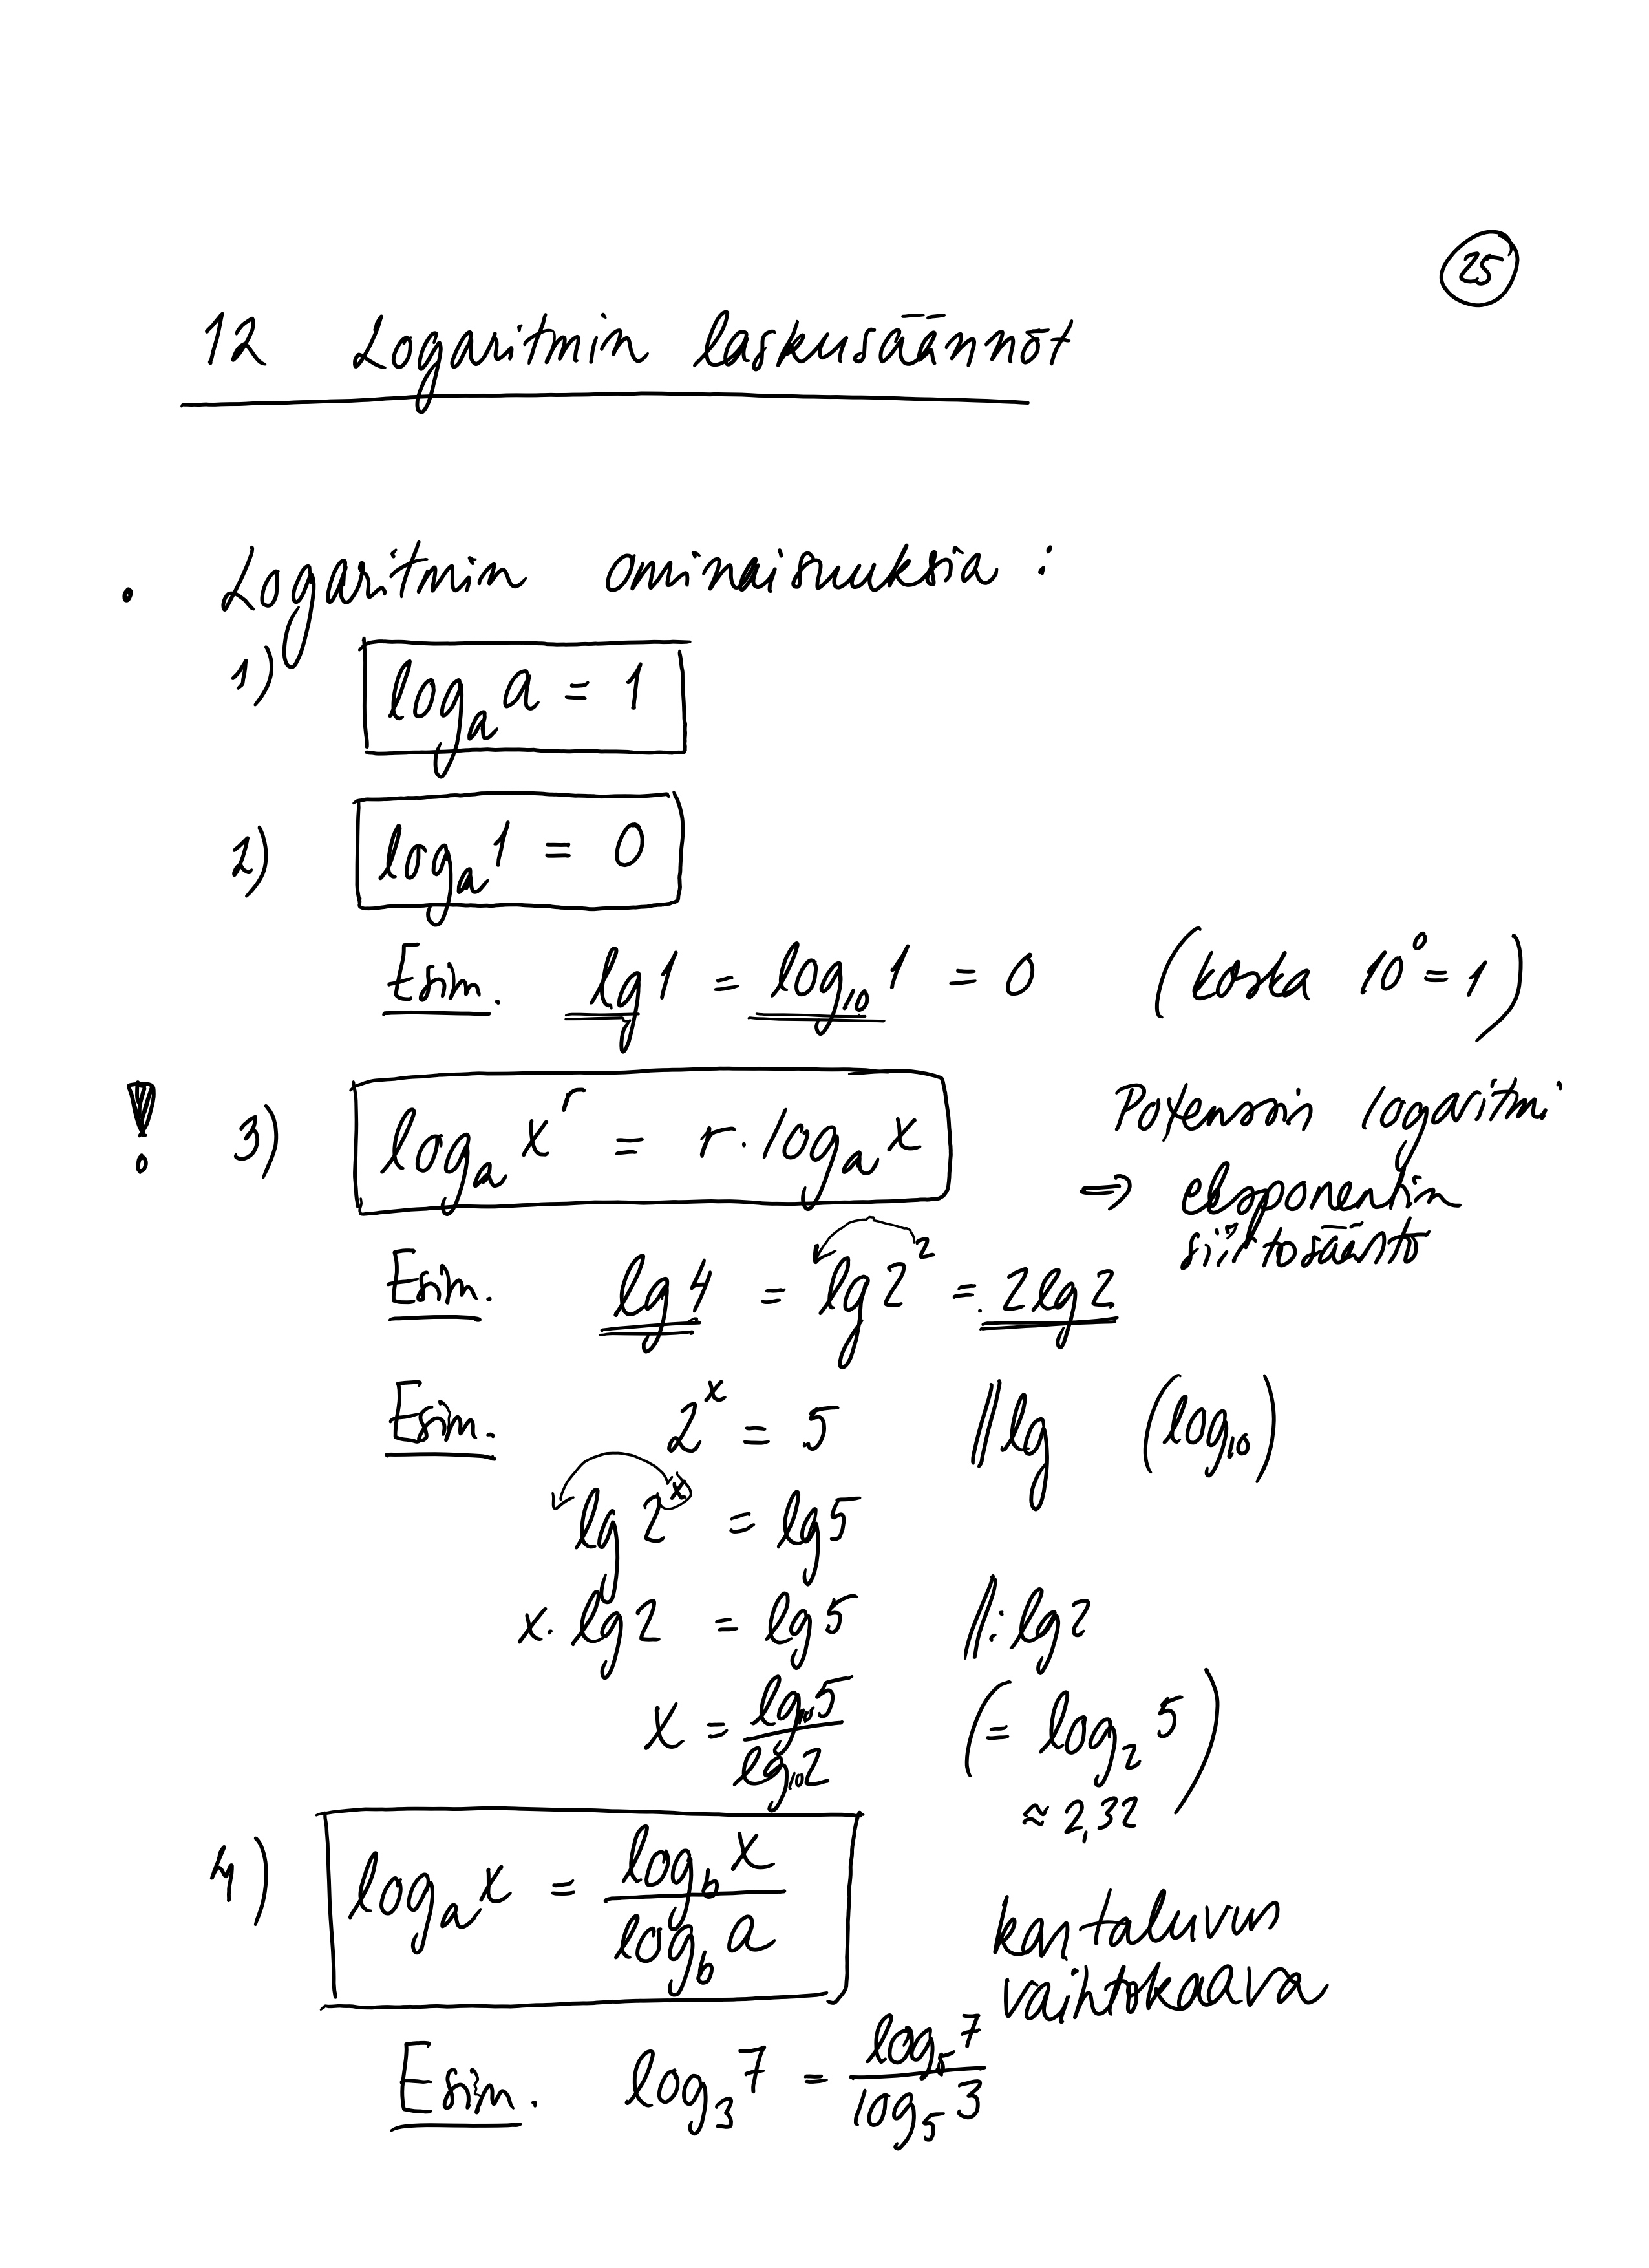 25
12 Logaritmin laskusäännöt
• Logaritmin ominaisuuksia :
1) logₐ a = 1
2) logₐ 1 = 0
Esim. lg 1 = log₁₀ 1 = 0 (koska 10⁰ = 1)
! 3) logₐ xʳ = r · logₐ x Potenssin logaritmi
=> eksponentin
siirtosääntö
Esim. lg 4 = lg 2² = 2 lg 2
Esim. 2ˣ = 5 || lg (log₁₀)
lg 2ˣ = lg 5
x · lg 2 = lg 5 || : lg 2
x = lg₁₀ 5 / lg₁₀ 2 (= log₂ 5)
≈ 2,32
4) logₐ x = log_b x / log_b a kantaluvun
vaihtokaava
Esim. log₃ 7 = log₅ 7 / log₅ 3